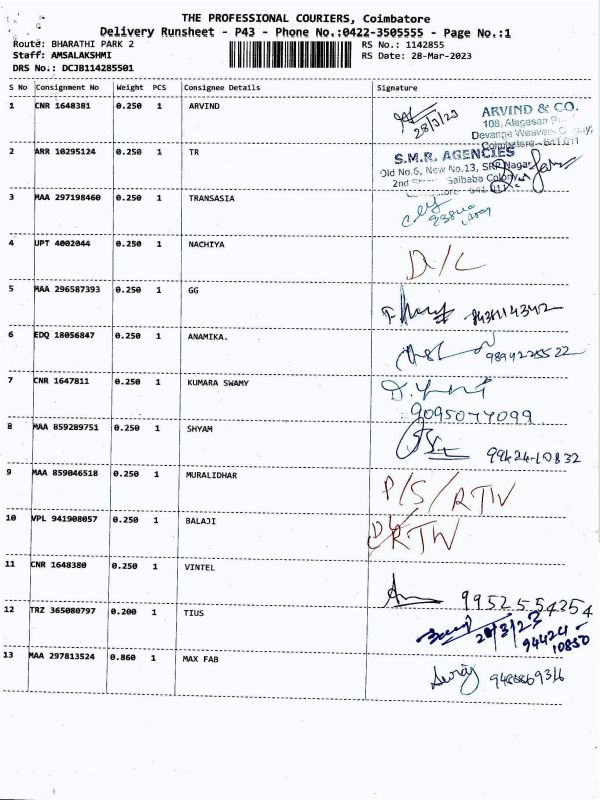 THE PROFESSIONAL COURIERS, Coimbatore
Delivery Runsheet - P43 - Phone No.:0422-3505555 - Page No.:1
Route: BHARATHI PARK 2 RS No.: 1142855
Staff: AMSALAKSHMI RS Date: 28-Mar-2023
DRS No.: DCJB114285501
S No Consignment No Weight PCS Consignee Details Signature
1 CNR 1648381 0.250 1 ARVIND
28/3/23
ARVIND & CO.
108, Alagesan
Devanga Weavers
Coimbatore - 641 011
2 ARR 10295124 0.250 1 TR
S.M.R. AGENCIES
Old No.6, New No.13, SRP Nagar
2nd Saibaba Colony
3 MAA 297198460 0.250 1 TRANSASIA
4 UPT 4002044 0.250 1 NACHIYA
D/L
5 MAA 296587393 0.250 1 GG
6 EDQ 18056847 0.250 1 ANAMIKA.
7 CNR 1647811 0.250 1 KUMARA SWAMY
9095077099
8 MAA 859289751 0.250 1 SHYAM
99424-10832
9 MAA 859046518 0.250 1 MURALIDHAR
P/S/RTW
10 VPL 941908057 0.250 1 BALAJI
D/L RTW
11 CNR 1648380 0.250 1 VINTEL
9952554254
12 TRZ 365080797 0.200 1 TIUS
28/3/23
94424-
10850
13 MAA 297813524 0.860 1 MAX FAB